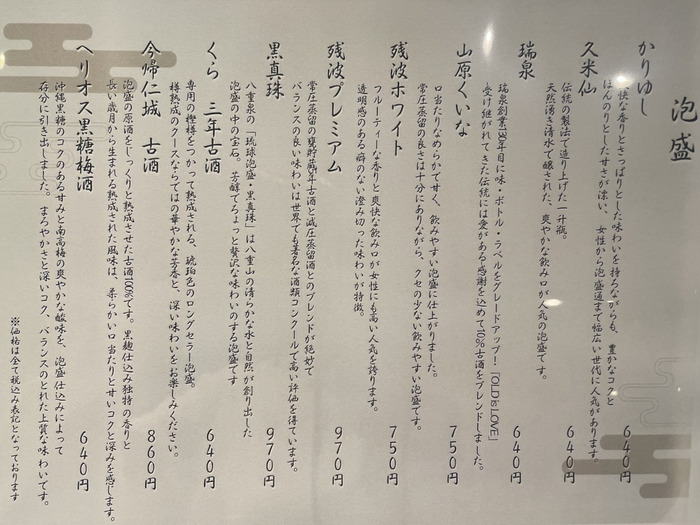 泡盛
かりゆし
爽快な香りとさっぱりとした味わいを持ちながらも、豊かなコクと
ほんのりとした甘さが漂い、女性から泡盛通まで幅広い世代に人気があります。
640円
久米仙
伝統の製法で造り上げた一升瓶。
天然湧き清水で醸された、爽やかな飲み口が人気の泡盛です。
640円
瑞泉
瑞泉創業130年目に味・ボトル・ラベルをグレードアップ！「OLD is LOVE」
受け継がれてきた伝統には愛がある！感謝を込めて10%古酒をブレンドしました。
640円
山原くいな
口当たりなめらかで甘く、飲みやすい泡盛に仕上がりました。
常圧蒸留の良さは十分にありながら、クセの少ない飲みやすい泡盛です。
750円
残波ホワイト
フルーティーな香りと爽快な飲み口が女性にも高い人気を誇ります。
透明感のある癖のない澄み切った味わいが特徴。
750円
残波プレミアム
常圧蒸留の甕貯蔵5年古酒と減圧蒸留酒とのブレンドが絶妙で
バランスの良い味わいは世界でも著名な酒類コンクールで高い評価を得ています。
970円
黒真珠
八重泉の「琉球泡盛・黒真珠」は八重山の清らかな水と自然が創り出した
泡盛の中の宝石。芳醇でちょっと贅沢な味わいのする泡盛です
970円
くら 三年古酒
専用の樫樽をつかって熟成される、琥珀色のロングセラー泡盛。
樽熟成のクースならではの華やかな芳香と、深い味わいをお楽しみください。
640円
今帰仁城 古酒
泡盛の原酒をじっくりと熟成させた古酒100%です。黒麹仕込み独特の香りと
長い歳月から生まれる熟成された風味は、柔らかい口当たりと甘いコクと深みを感じます。
860円
ヘリオス黒糖梅酒
沖縄黒糖のコクのある甘みと南高梅の爽やかな酸味を、泡盛仕込みによって
存分に引き出しました。まろやかさと深いコク、バランスのとれた上質な味わいです。
640円
※価格は全て税込み表記となっております